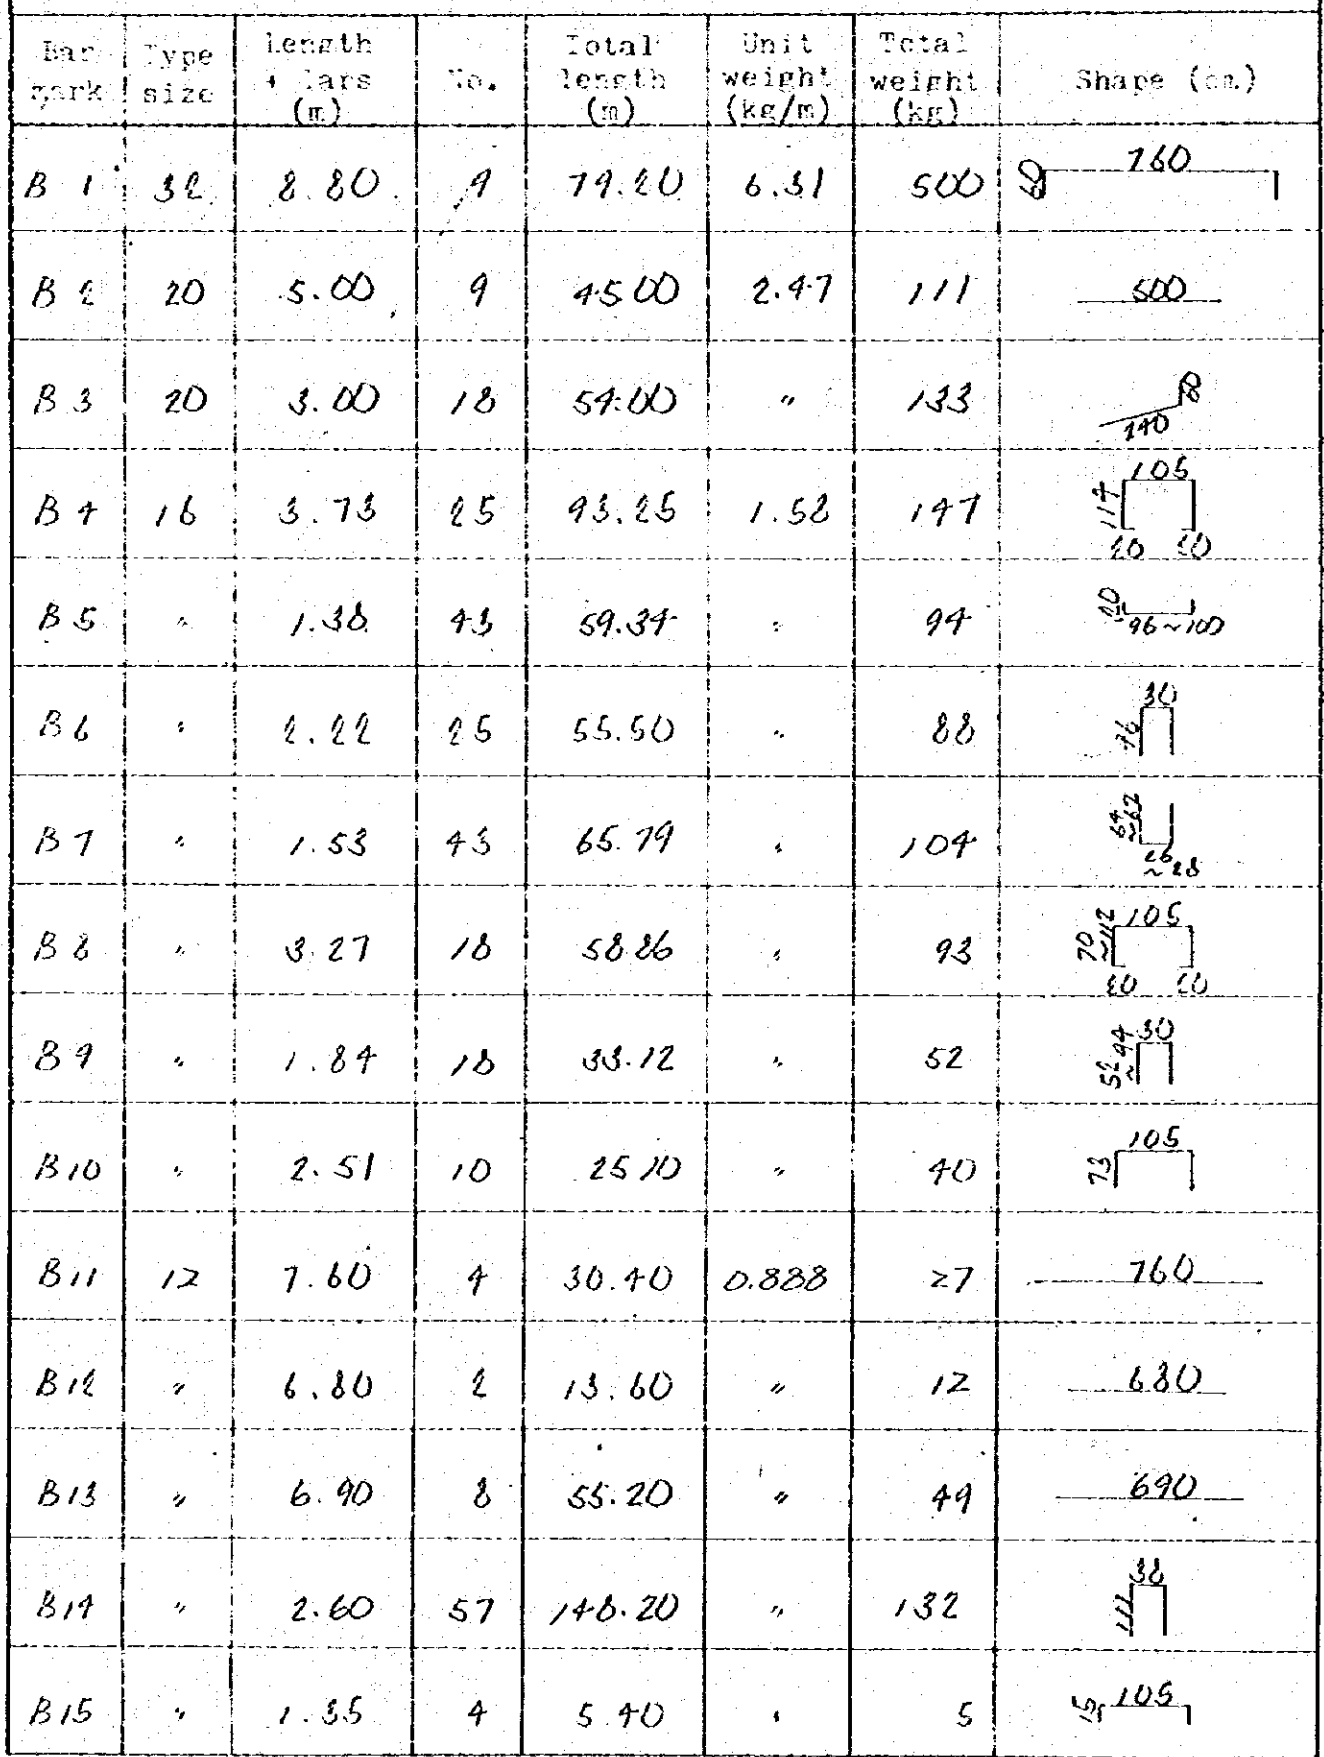 Bar mark | Type size | Length + laps (m) | No. | Total length (m) | Unit weight (kg/m) | Total weight (kg) | Shape (cm)
B 1 | 32 | 8.80 | 9 | 79.20 | 6.31 | 500 | 60 760
B 2 | 20 | 5.00 | 9 | 45.00 | 2.47 | 111 | 500
B 3 | 20 | 3.00 | 18 | 54.00 | " | 133 | 240
B 4 | 16 | 3.73 | 25 | 93.25 | 1.58 | 147 | 105 114 20 20
B 5 | " | 1.38 | 43 | 59.34 | " | 94 | 20 96~100
B 6 | " | 2.22 | 25 | 55.50 | " | 88 | 30 96
B 7 | " | 1.53 | 43 | 65.79 | " | 104 | 64~62 26~28
B 8 | " | 3.27 | 18 | 58.86 | " | 93 | 105 70~112 20 20
B 9 | " | 1.84 | 18 | 33.12 | " | 52 | 30 52~94
B 10 | " | 2.51 | 10 | 25.10 | " | 40 | 105 73
B 11 | 12 | 7.60 | 4 | 30.40 | 0.888 | 27 | 760
B 12 | " | 6.80 | 2 | 13.60 | " | 12 | 680
B 13 | " | 6.90 | 8 | 55.20 | " | 49 | 690
B 14 | " | 2.60 | 57 | 148.20 | " | 132 | 38 111
B 15 | " | 1.35 | 4 | 5.40 | " | 5 | 15 105